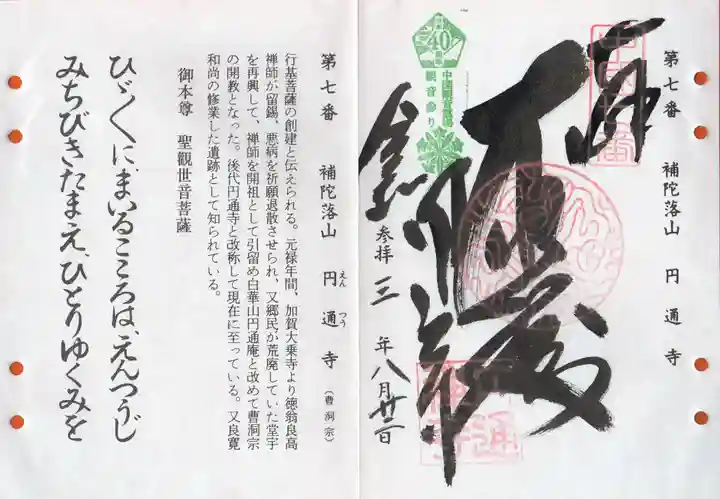 第七番 補陀落山 円通寺
奉拝
大悲殿
円通寺
参拝 三 年八月廿二日
40
中国観音霊場
観音参り
第七番 補陀落山 円通寺 (曹洞宗)
えん つう
行基菩薩の創建と伝えられる。元禄年間、加賀大乗寺より徳翁良高
禅師が留錫、悪病を祈願退散させられ、又郷民が荒廃していた堂宇
を再興して、禅師を開祖として引留め白華山円通庵と改めて曹洞宗
の開教となった。後代円通寺と改称して現在に至っている。又良寛
和尚の修業した遺跡として知られている。
御本尊 聖観世音菩薩
ひゞくに、まいるこころは、えんつうじ
みちびきたまえ、ひとりゆくみを